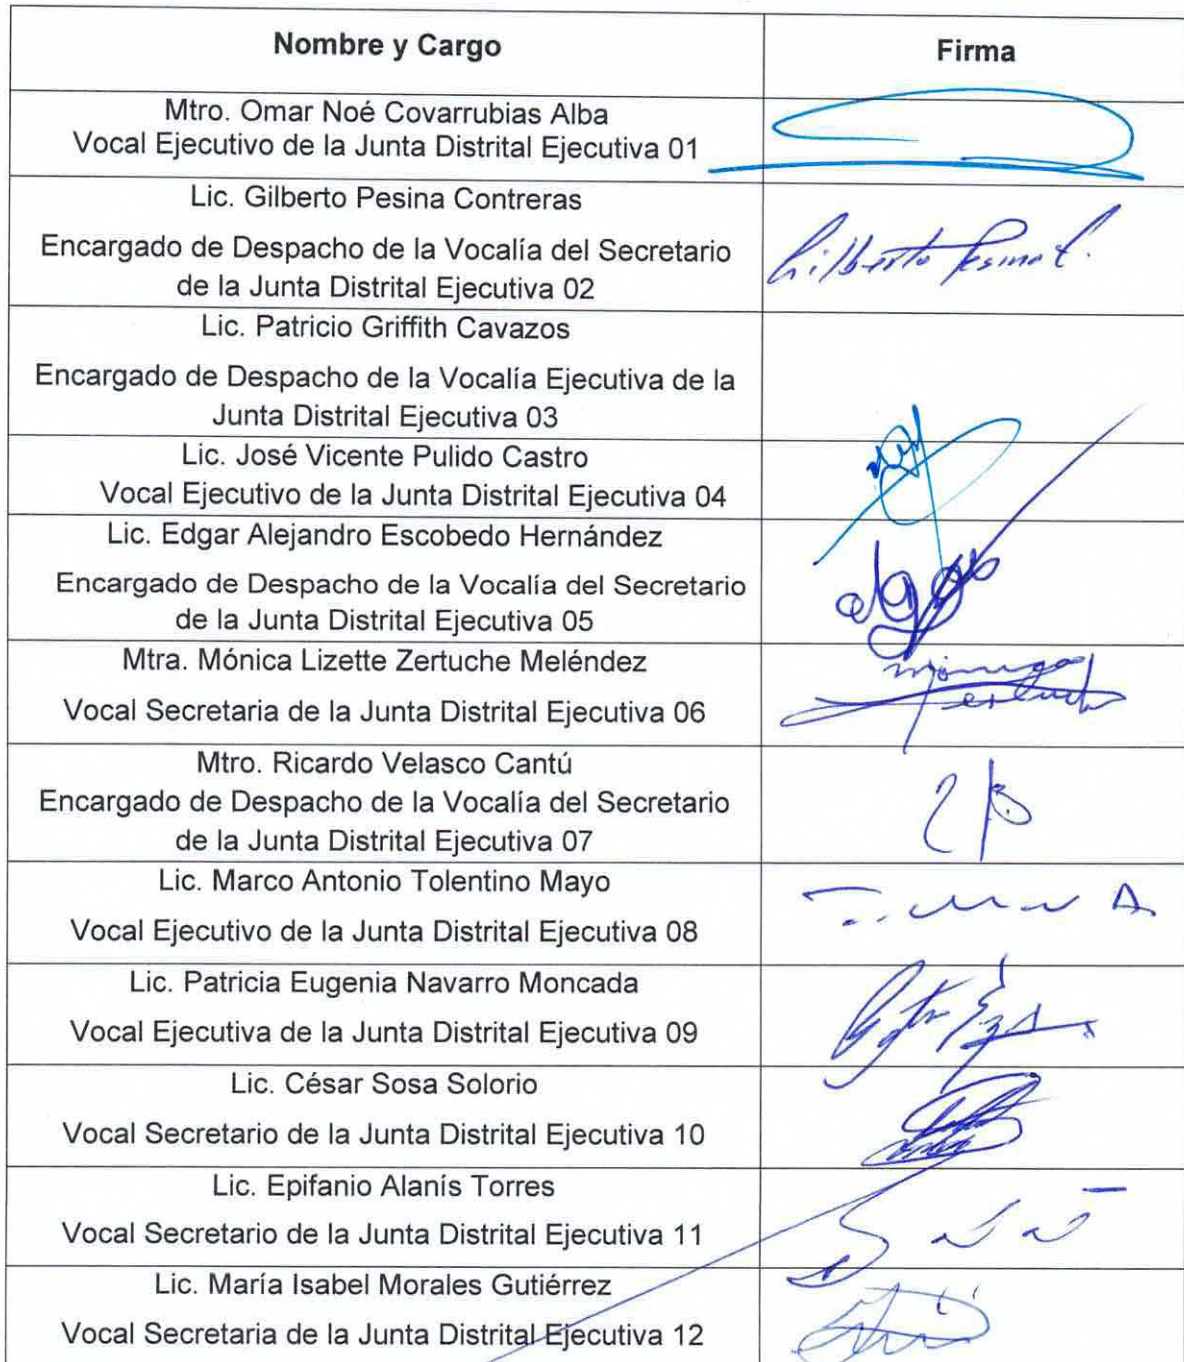 Nombre y Cargo
Firma
Mtro. Omar Noé Covarrubias Alba
Vocal Ejecutivo de la Junta Distrital Ejecutiva 01
Lic. Gilberto Pesina Contreras
Encargado de Despacho de la Vocalía del Secretario
de la Junta Distrital Ejecutiva 02
Gilberto Pesina C.
Lic. Patricio Griffith Cavazos
Encargado de Despacho de la Vocalía Ejecutiva de la
Junta Distrital Ejecutiva 03
Lic. José Vicente Pulido Castro
Vocal Ejecutivo de la Junta Distrital Ejecutiva 04
Lic. Edgar Alejandro Escobedo Hernández
Encargado de Despacho de la Vocalía del Secretario
de la Junta Distrital Ejecutiva 05
Mtra. Mónica Lizette Zertuche Meléndez
Vocal Secretaria de la Junta Distrital Ejecutiva 06
Mtro. Ricardo Velasco Cantú
Encargado de Despacho de la Vocalía del Secretario
de la Junta Distrital Ejecutiva 07
Lic. Marco Antonio Tolentino Mayo
Vocal Ejecutivo de la Junta Distrital Ejecutiva 08
Lic. Patricia Eugenia Navarro Moncada
Vocal Ejecutiva de la Junta Distrital Ejecutiva 09
Lic. César Sosa Solorio
Vocal Secretario de la Junta Distrital Ejecutiva 10
Lic. Epifanio Alanís Torres
Vocal Secretario de la Junta Distrital Ejecutiva 11
Lic. María Isabel Morales Gutiérrez
Vocal Secretaria de la Junta Distrital Ejecutiva 12